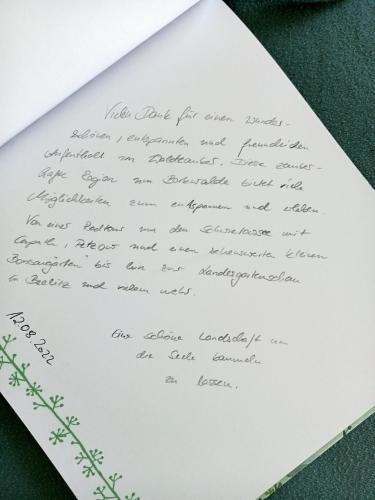 Vielen Dank für einen wunder-
schönen, entspannten und freundlichen
Aufenthalt im Waldzauber. Diese zauber-
hafte Region um Borkwalde bietet viele
Möglichkeiten zum entspannen und erleben.
Von einer Radtour um den Schwielowsee mit
Caputh, Petzow und einen sehenswerten kleinen
Bonsaigarten bis hin zur Landesgartenschau
in Beelitz und vielem mehr.
Eine schöne Landschaft um
die Seele baumeln
zu lassen.
12.08.2022